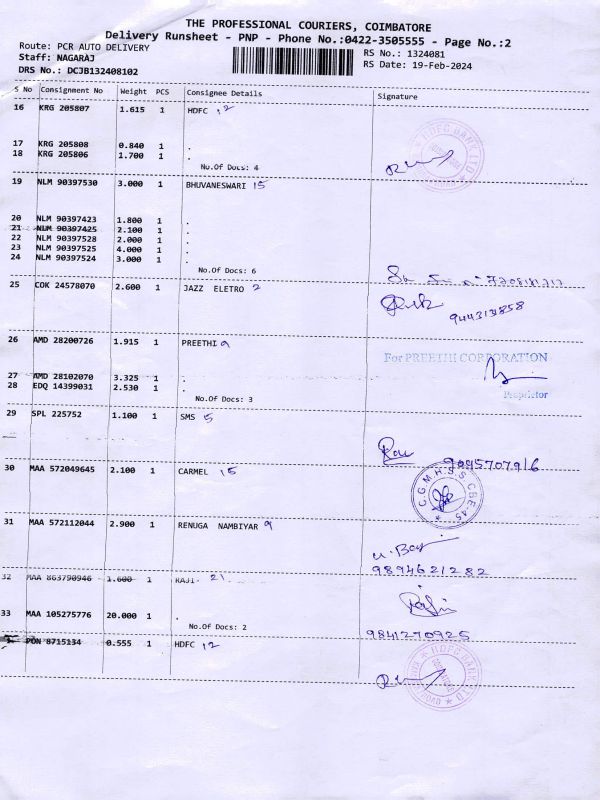 THE PROFESSIONAL COURIERS, COIMBATORE
Delivery Runsheet - PNP - Phone No.:0422-3505555 - Page No.:2
Route: PCR AUTO DELIVERY
RS No.: 1324081
Staff: NAGARAJ
RS Date: 19-Feb-2024
DRS No.: DCJB132408102
S No Consignment No Weight PCS Consignee Details Signature
16 KRG 205807 1.615 1 HDFC 12
17 KRG 205808 0.840 1 .
18 KRG 205806 1.700 1 .
No.Of Docs: 4
HDFC BANK LTD
19 NLM 90397530 3.000 1 BHUVANESWARI 15
20 NLM 90397423 1.800 1 .
21 NLM 90397425 2.100 1 .
22 NLM 90397528 2.000 1 .
23 NLM 90397525 4.000 1 .
24 NLM 90397524 3.000 1 .
No.Of Docs: 6
25 COK 24578070 2.600 1 JAZZ ELETRO 2
26 AMD 28200726 1.915 1 PREETHI 9
For PREETHI CORPORATION
27 AMD 28102070 3.325 1 .
28 EDQ 14399031 2.530 1 .
Proprietor
No.Of Docs: 3
29 SPL 225752 1.100 1 SMS 5
30 MAA 572049645 2.100 1 CARMEL 15
C.G.M.H.S.S CBE-45
31 MAA 572112044 2.900 1 RENUGA NAMBIYAR 9
9894621282
32 MAA 863790946 1.600 1 RAJI- 21
33 MAA 105275776 20.000 1 .
No.Of Docs: 2
9841270925
PON 8715134 0.555 1 HDFC 12
HDFC BANK LTD